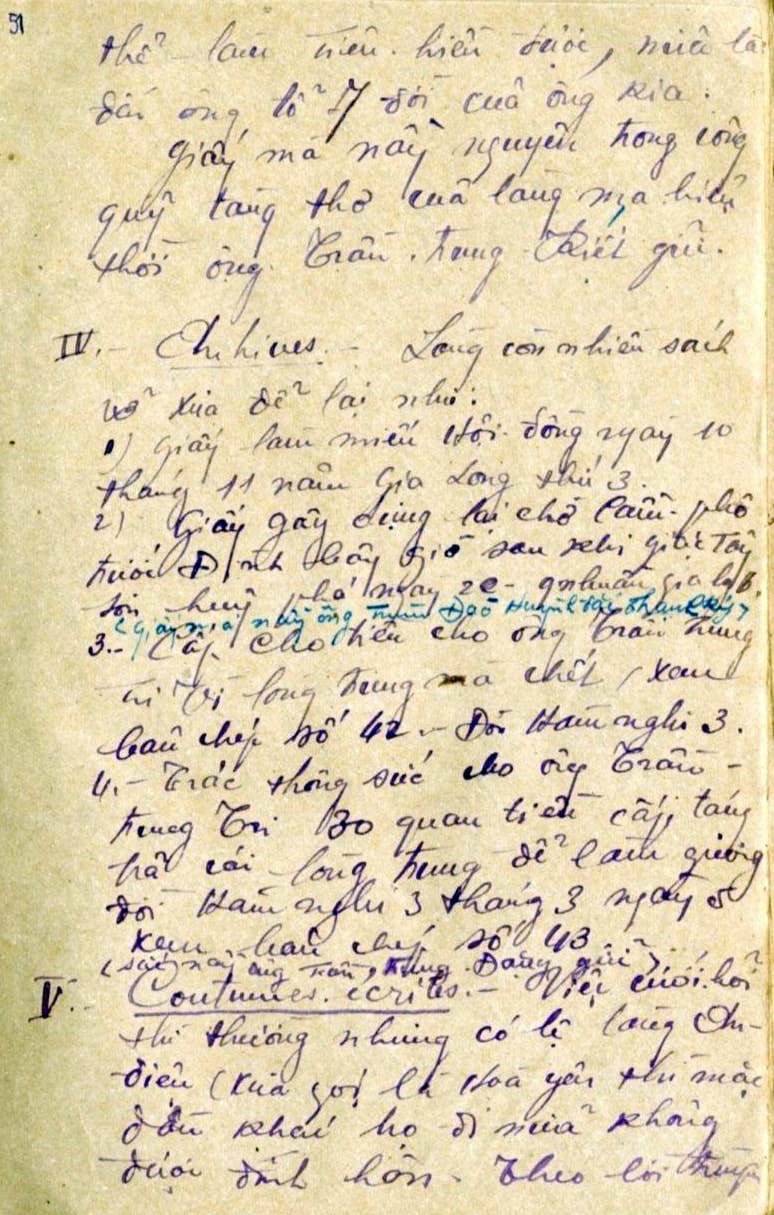 51
thể làm tiền hiền được, nữa là
đời ông tổ 7 đời của ông kia.
Giấy mà nầy nguyên trong công
quỹ tàng thơ của làng mà hiện
thời ông Trần Trung Kiết giữ.
IV.- Archives.- Làng còn nhiều sách
vở xưa để lại như:
1) Giấy làm miếu Hội đồng ngày 10
tháng 11 năm Gia Long thứ 3.
2) Giấy gầy dựng lại chợ Cẩm phô
trước Đình bây giờ sau khi giặc Tây
sơn huỷ phá ngày 20 - nhuần gia long 6.
(Giấy mà nầy ông Đạo Huỳnh
3.- Cấp cho tiền cho ông Trần Trung
Tri vị lòng trung mà chết (xem
bản chép số 42.- Đời Hàm nghi 3.
4.- Trác thông sức cho ông Trần -
trung Tri 30 quan tiền cấp táng
trả cái lòng trung để làm gương
đời Hàm nghi 3 tháng 3 ngày 5
xem bản chép số 43
(sức nầy ông Trần Trung Đăng giữ)
V.- Coutumes écrites.- Việc cưới hỏi
thì thường nhưng có lệ làng An-
điền (xưa gọi là Hoà yên thì mặc
dầu khai họ đi nữa không
được đính hôn. Theo lời